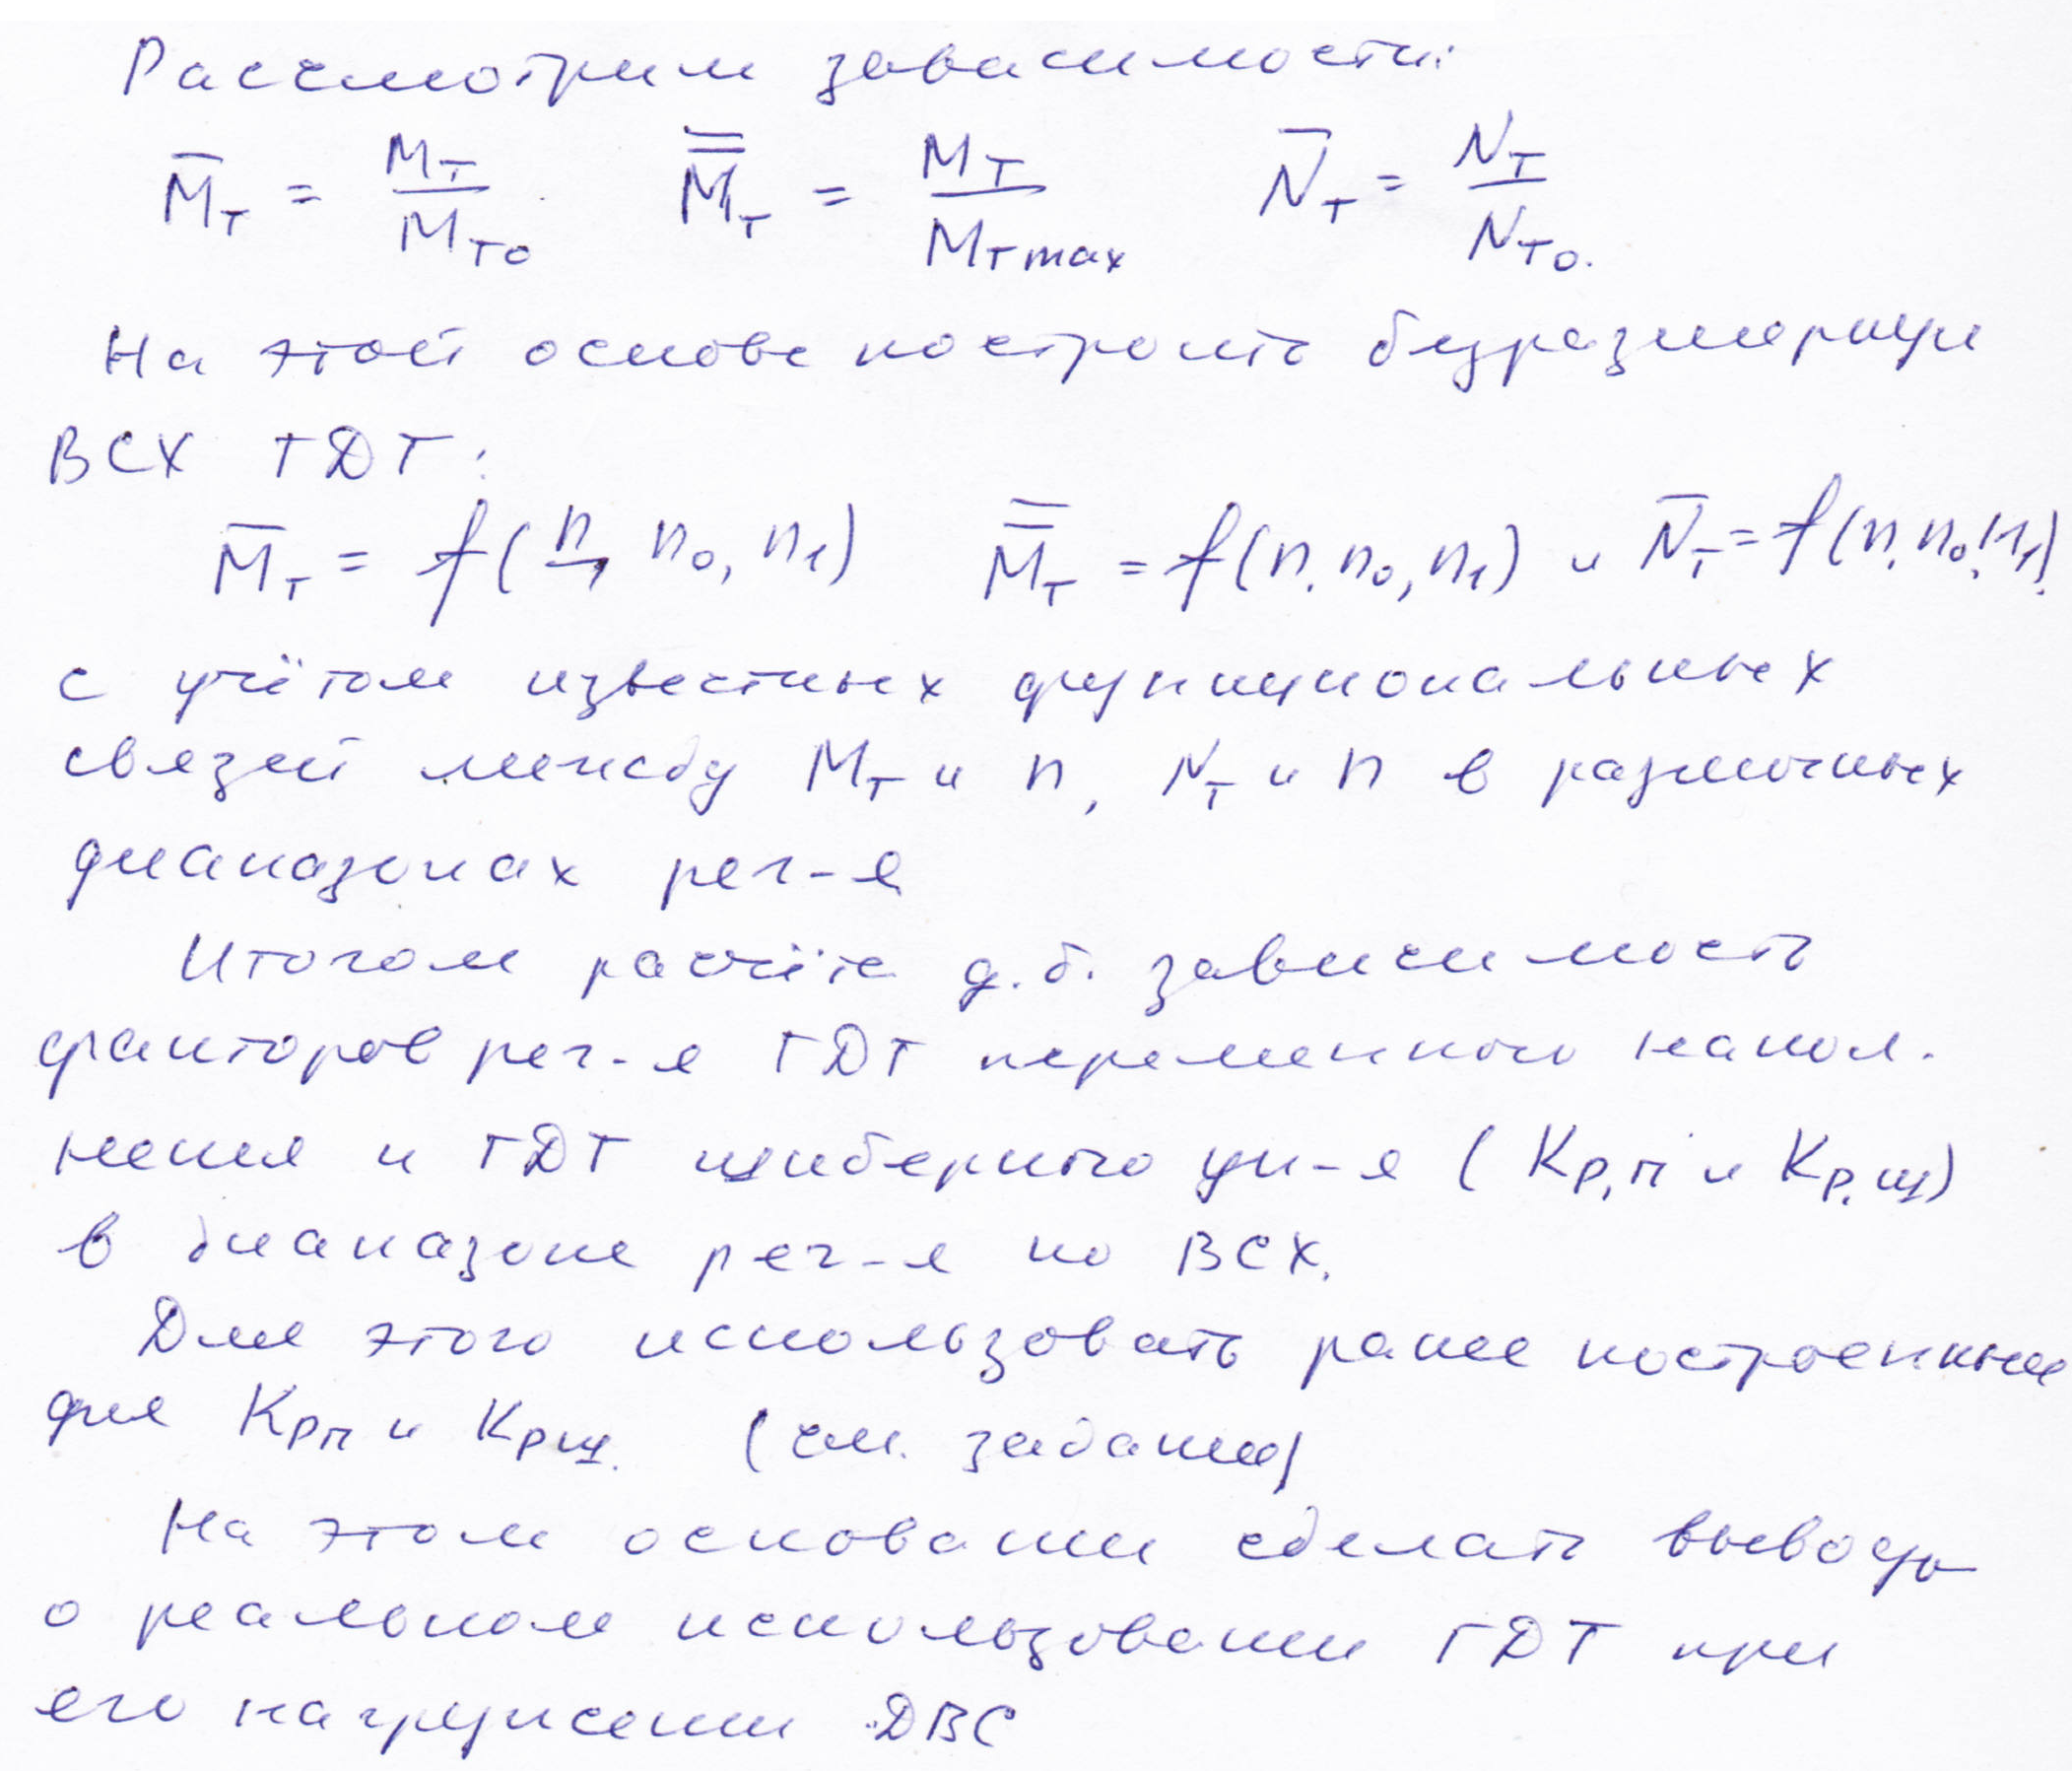 Рассмотрим зависимости:
M̅т = Mт / Mт0   M̿т = Mт / Mтmax   N̅т = Nт / Nт0.
На этой основе построить безразмерную
ВСХ ГДТ:
M̅т = f(n, n0, n1)   M̿т = f(n, n0, n1) и N̅т = f(n, n0, n1).
с учётом известных функциональных
связей между Mт и n, Nт и n в различных
диапазонах рег-я
Итогом расчёта д.б. зависимость
факторов рег-я ГДТ переменного напол-
нения и ГДТ шиберного уп-я (Kр,п и Kр,ш)
в диапазоне рег-я по ВСХ.
Для этого использовать ранее построенные
для Kрп и Kрш. (см. задание)
На этом основании сделать выводы
о реальном использовании ГДТ при
его нагружении ДВС